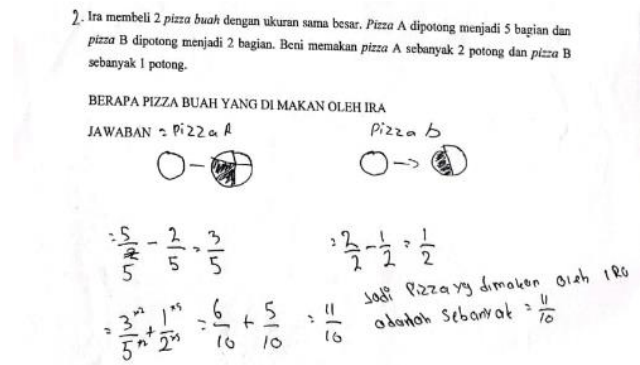 2. Ira membeli 2 pizza buah dengan ukuran sama besar. Pizza A dipotong menjadi 5 bagian dan
pizza B dipotong menjadi 2 bagian. Beni memakan pizza A sebanyak 2 potong dan pizza B
sebanyak 1 potong.
BERAPA PIZZA BUAH YANG DI MAKAN OLEH IRA
JAWABAN = Pizza A
Pizza b
= 5/5 - 2/5 = 3/5
= 2/2 - 1/2 = 1/2
= 3×2/5×2 + 1×5/2×5 = 6/10 + 5/10 = 11/10
Jadi Pizza yg dimakan oleh IRA
adalah sebanyak = 11/10